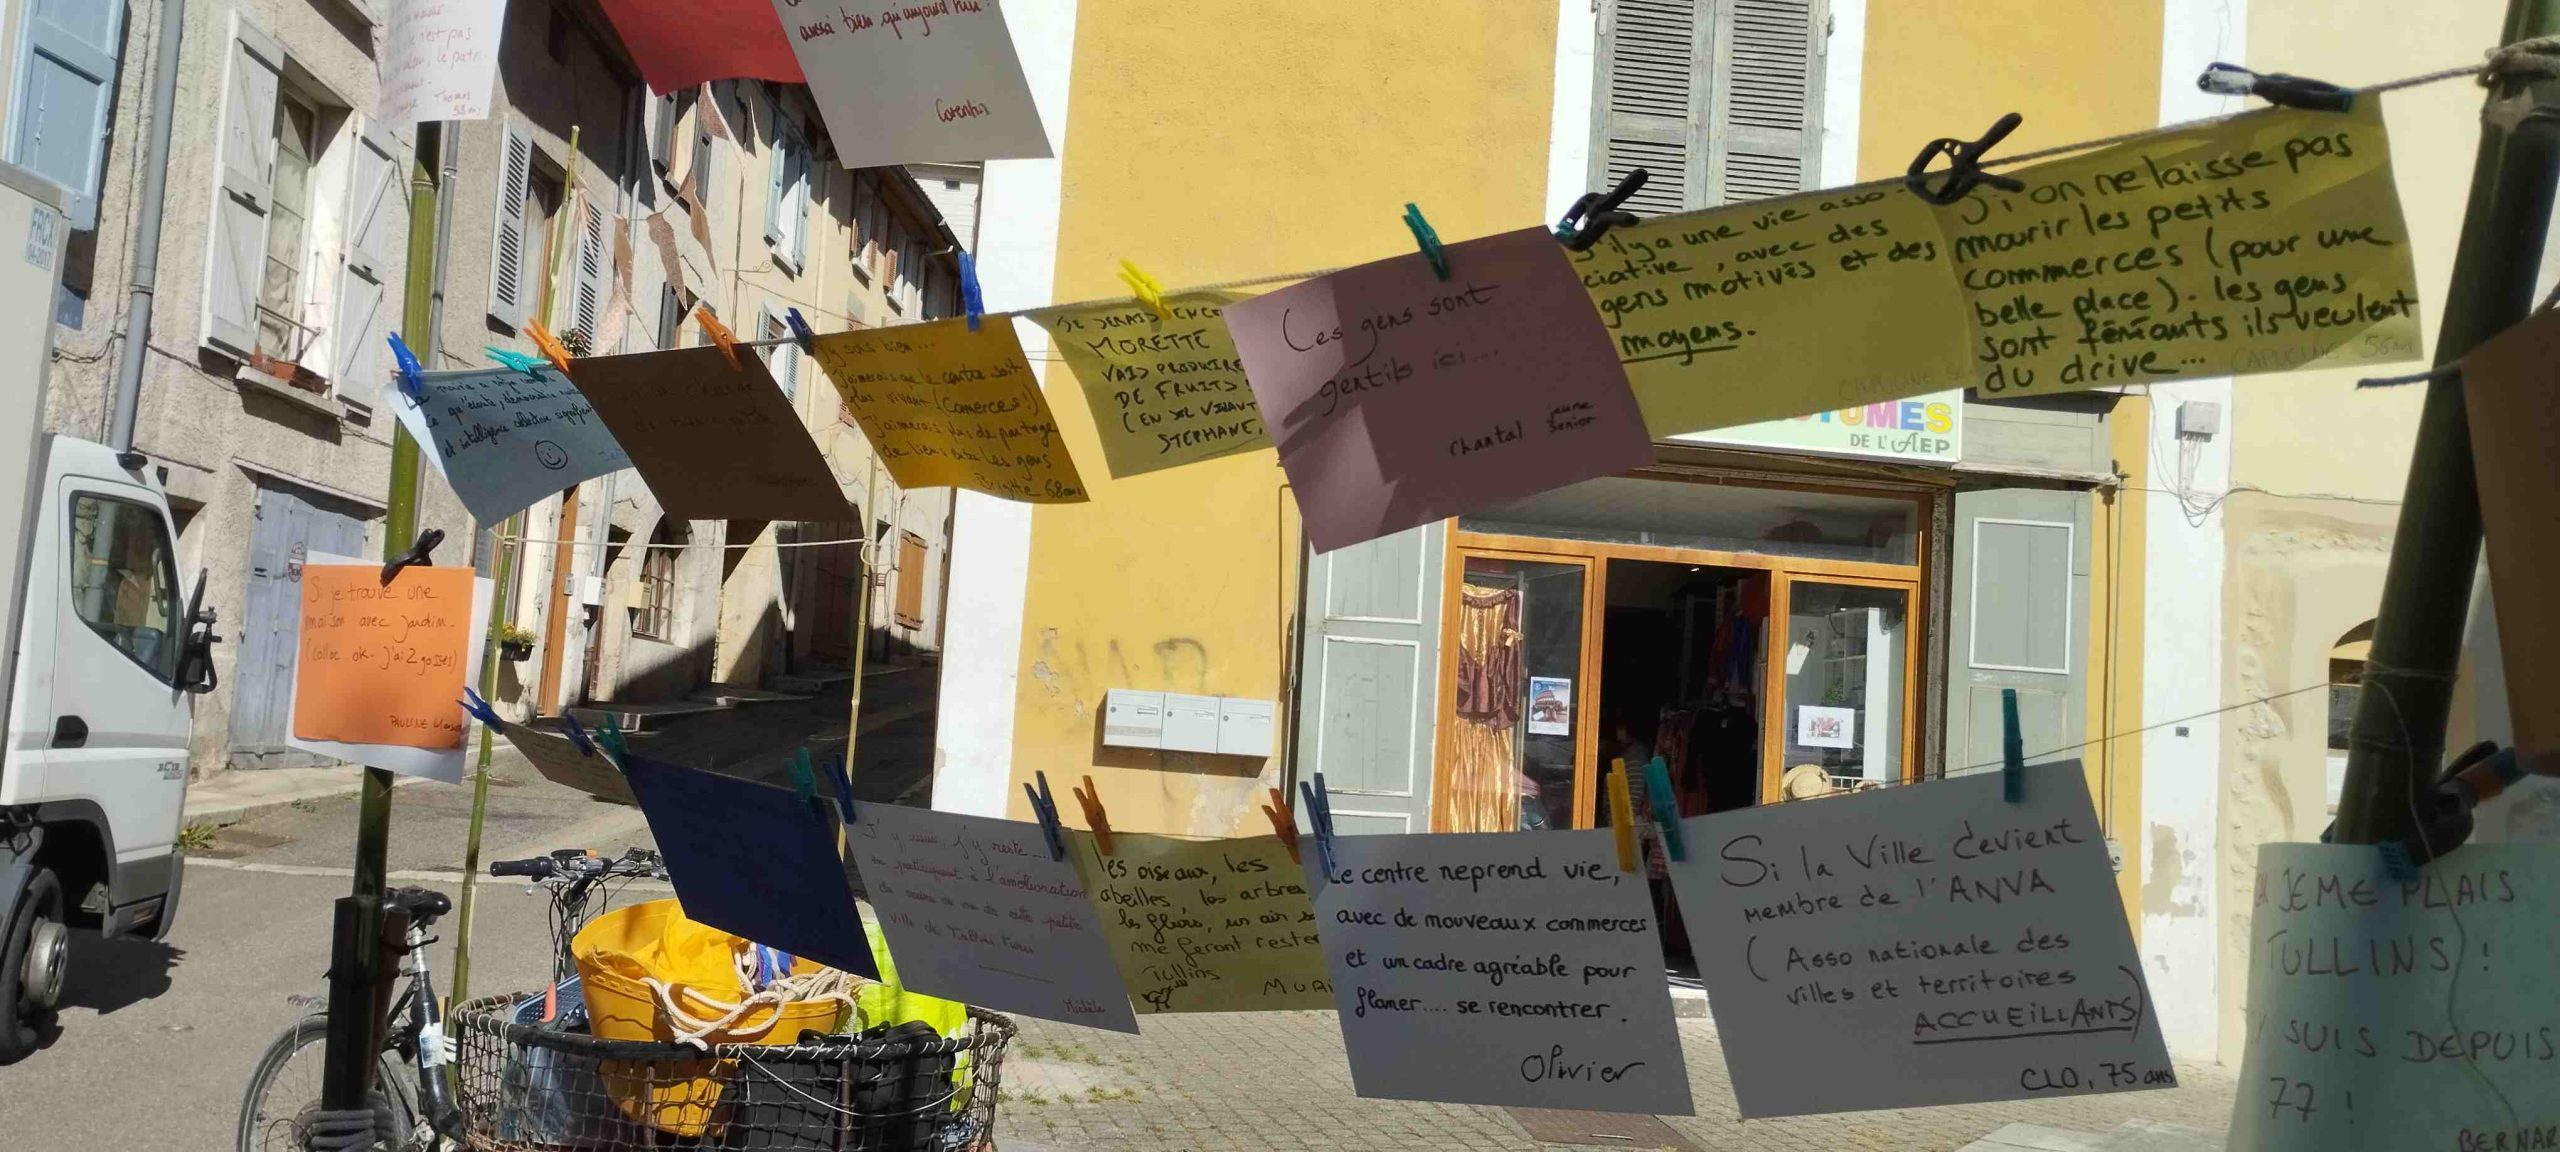 n'est pas
le patri-
Thomas
aussi bien qu'aujourd'hui.
Corentin
FRCX
04-2017
La mairie a
ce qu'écoute, démocratie
et intelligence collective signifient
J'y suis bien...
J'aimerais que le centre soit
plus vivant (Comerces!)
J'aimerais plus de partage
de liens entre les gens
Brigitte 68 ans
JE SERAIS ENCO
MORETTE
VAIS PRODUIRE
DE FRUITS
STEPHANE,
Les gens sont
gentils ici...
Chantal jeune
senior
S'il y a une vie asso-
ciative, avec des
gens motivés et des
moyens.
CAPUCINE
Si on ne laisse pas
mourir les petits
commerces (pour une
belle place). les gens
sont fénéants ils veulent
du drive...
CAPUCINE 55
TUMES
DE L'AEP
Si je trouve une
maison avec jardin.
(colloc ok. j'ai 2 gosses)
PAULINE
J'y suis, j'y reste...
en participant à l'amélioration
du cadre de vie de cette petite
ville de Tullins Fures
Michèle
les oiseaux, les
abeilles, les arbres
les fleurs, un air
me feront rester
Tullins
MURI
Le centre reprend vie,
avec de nouveaux commerces
et un cadre agréable pour
flaner.... se rencontrer.
Olivier
Si la Ville devient
membre de l'ANVA
(Asso nationale des
villes et territoires
ACCUEILLANTS)
CLO, 75 ans
JE ME PLAIS
TULLINS!
SUIS DEPUIS
77!
BERNAR